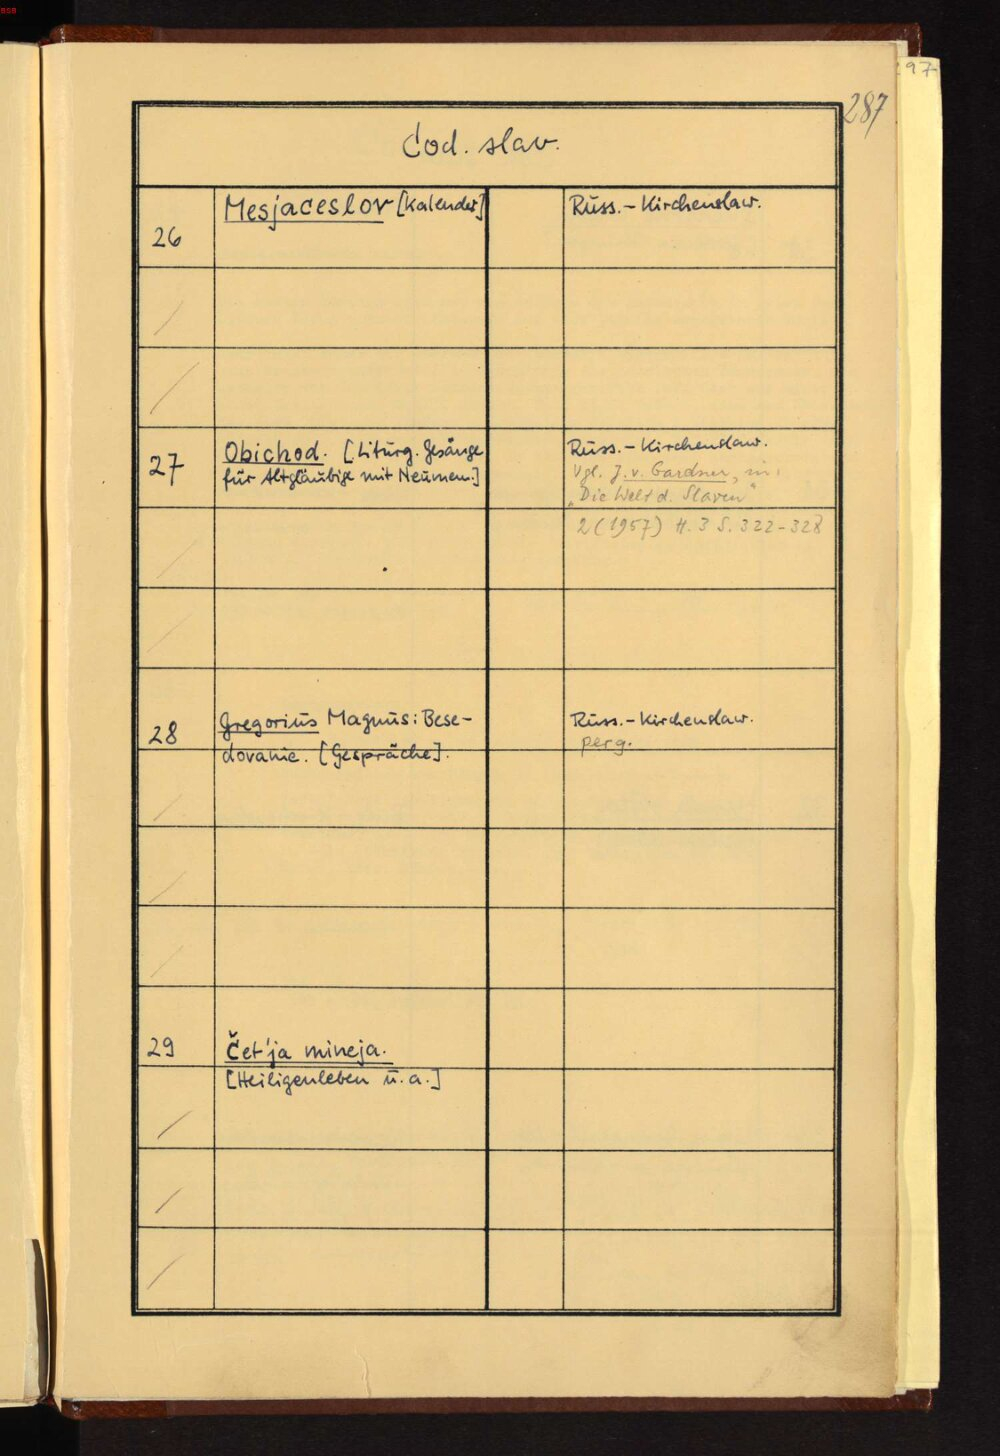 287
Cod. slav.
26 Mesjaceslov [Kalender] Russ.-Kirchenslaw.
27 Obichod. [Liturg. Gesänge Russ.-Kirchenslaw.
für Altgläubige mit Neumen.] Vgl. J. v. Gardner, in:
„Die Welt d. Slaven“
2 (1957) H. 3 S. 322-328
28 Gregorius Magnus: Bese- Russ.-Kirchenslaw.
dovanie. [Gespräche]. perg.
29 Čet'ja mineja.
[Heiligenleben u. a.]